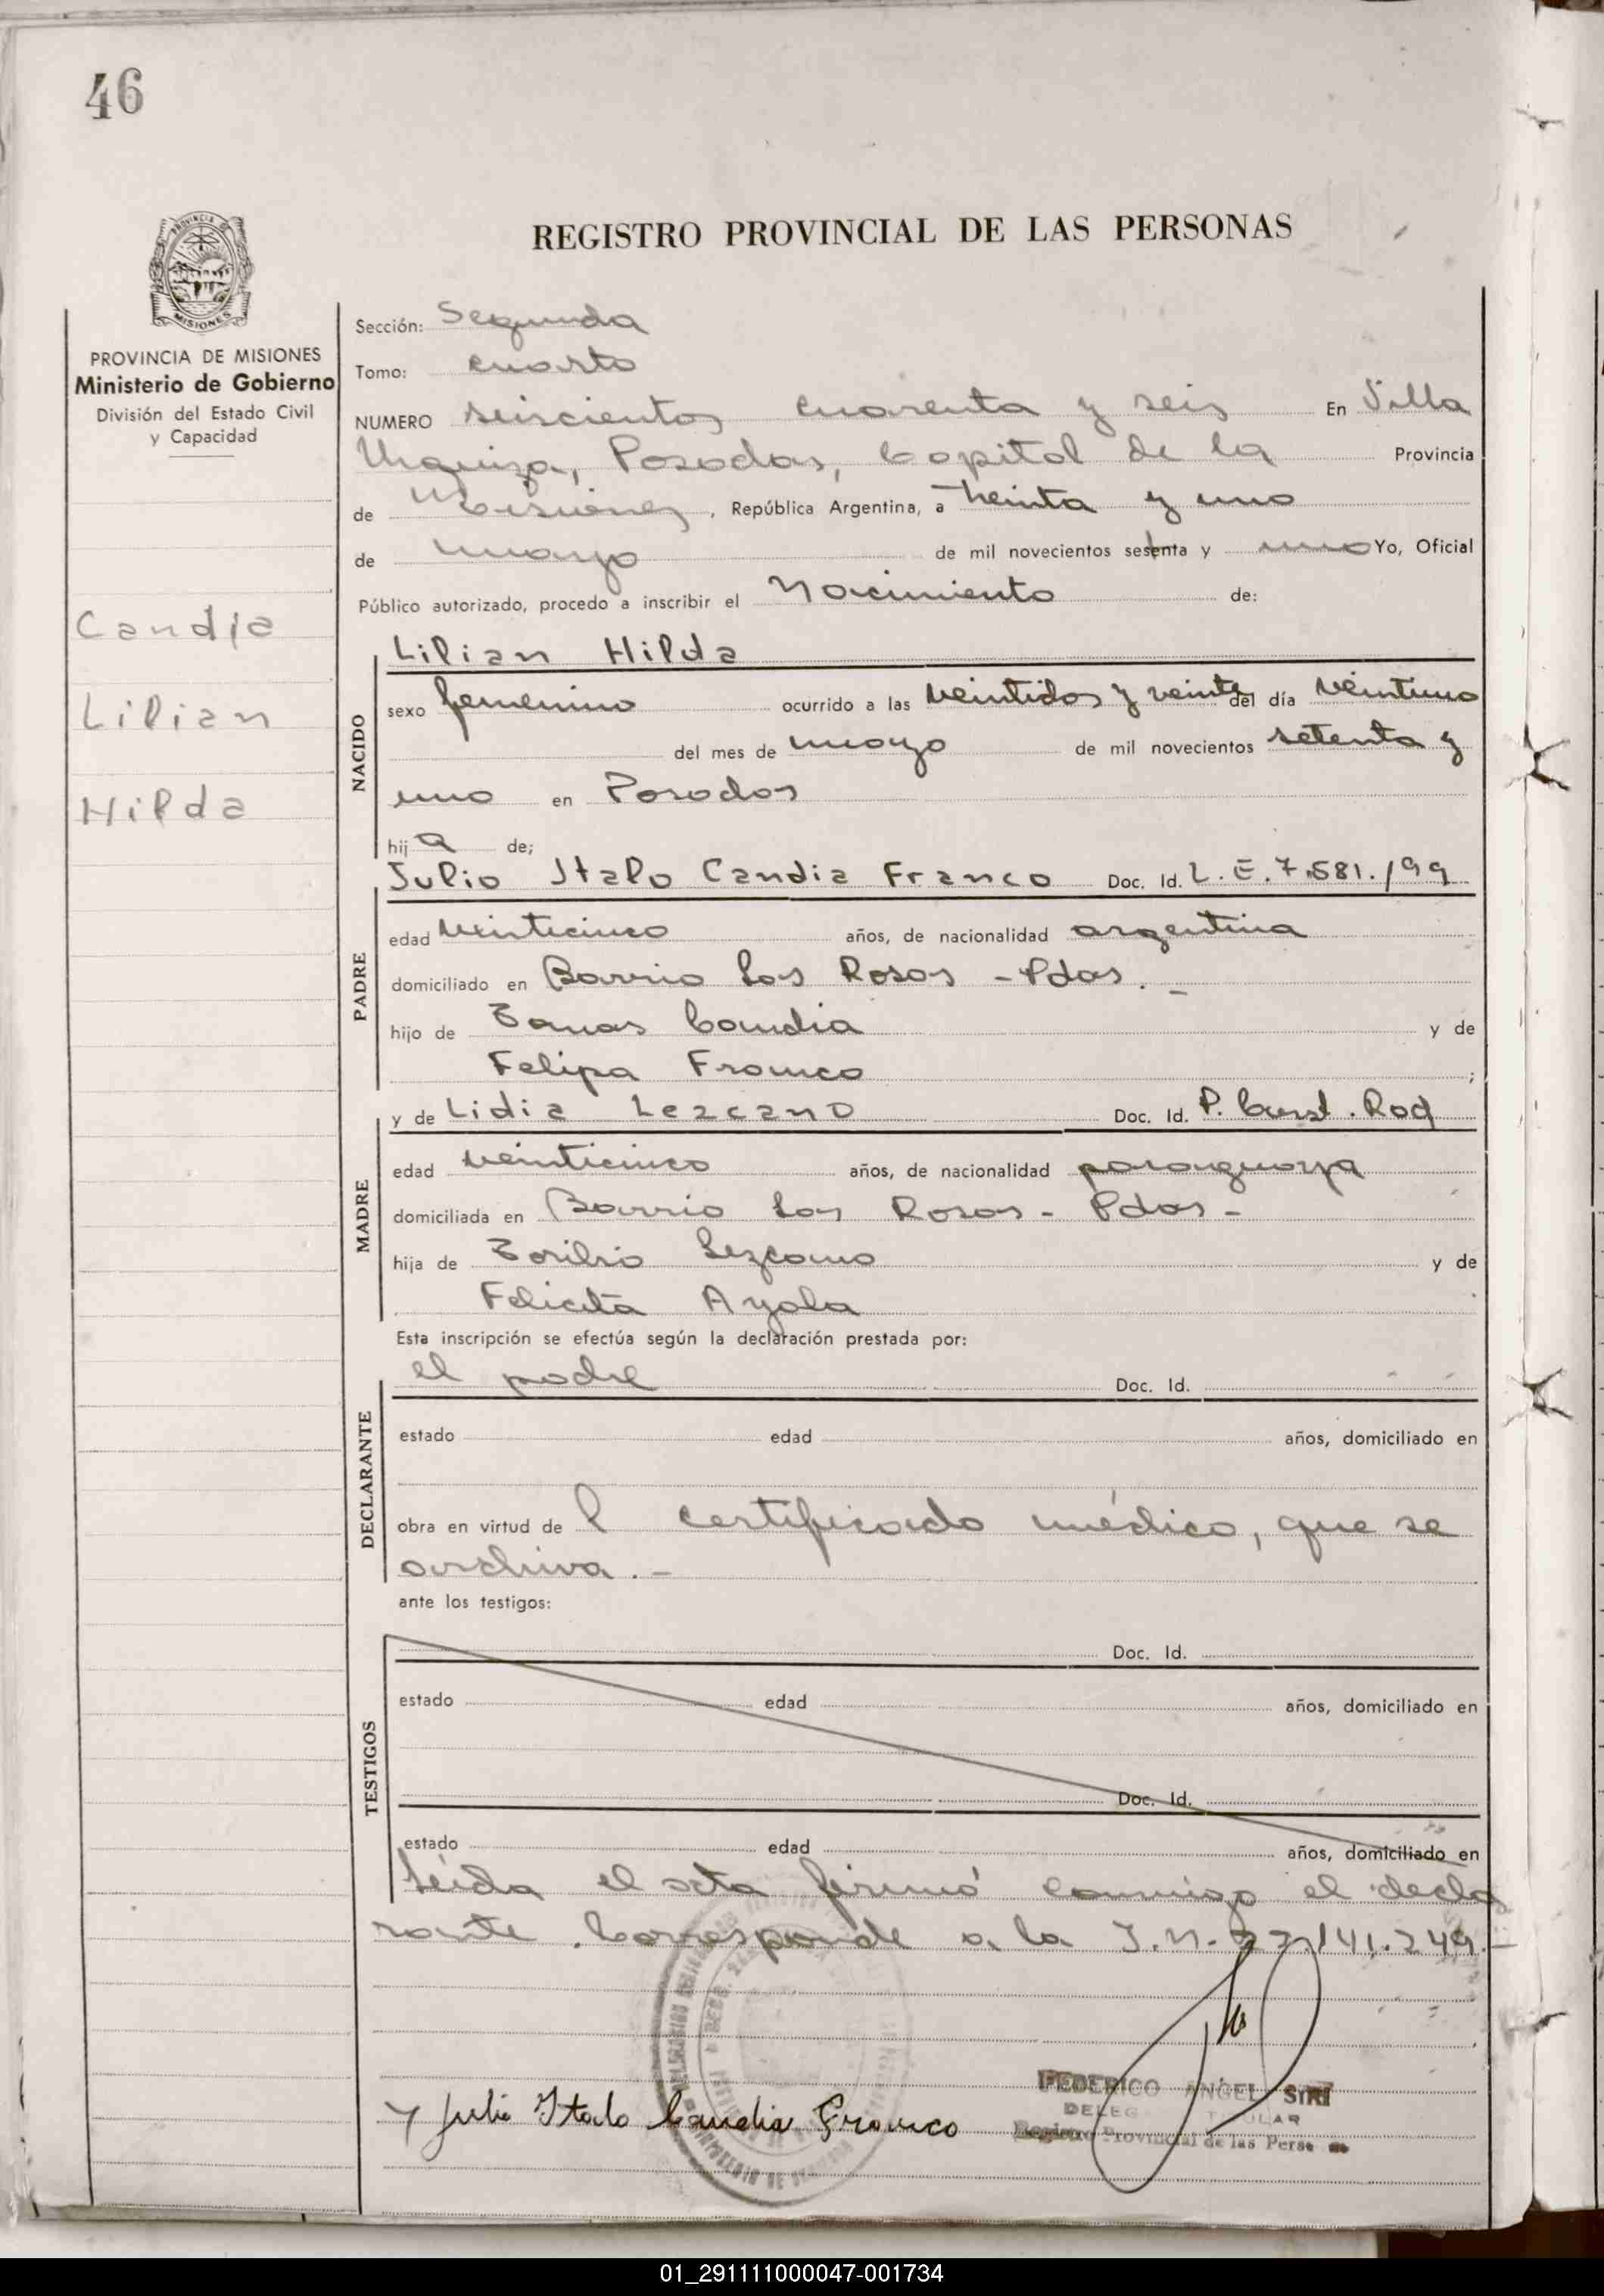 46
REGISTRO PROVINCIAL DE LAS PERSONAS
PROVINCIA
MISIONES
PROVINCIA DE MISIONES
Ministerio de Gobierno
División del Estado Civil
y Capacidad
Candia
Lilian
Hilda
Sección: Segunda
Tomo: cuarto
NUMERO seiscientos cuarenta y seis En Villa
Urquiza, Posadas, Capital de la Provincia
de Misiones, República Argentina, a treinta y uno
de mayo de mil novecientos setenta y uno Yo, Oficial
Público autorizado, procedo a inscribir el Nacimiento de:
NACIDO
Lilian Hilda
sexo femenino ocurrido a las veintidos y veinte del día veintiuno
del mes de mayo de mil novecientos setenta y
uno en Posadas
hija de;
PADRE
Julio Italo Candia Franco Doc. Id. L.E. 7.581.199
edad veinticinco años, de nacionalidad argentina
domiciliado en Barrio Las Rosas - Pdas. -
hijo de Candia y de
Felipa Franco ;
MADRE
y de Lidia Lezcano Doc. Id. P. Rod
edad veinticinco años, de nacionalidad paraguaya
domiciliada en Barrio Las Rosas - Pdas -
hija de Toribio Lezcano y de
Felicita Ayala
Esta inscripción se efectúa según la declaración prestada por:
DECLARANTE
el padre Doc. Id.
estado edad años, domiciliado en
obra en virtud del certificado médico, que se
archiva. -
ante los testigos:
TESTIGOS
Doc. Id.
estado edad años, domiciliado en
Doc. Id.
estado edad años, domiciliado en
Leída el acta firmó conmigo el decla
rante. Corresponde a la I.N. 22.141.249. -
Julio Italo Candia Franco
FEDERICO ANGEL SIRI
Registro Provincial de las Perso
01_291111000047-001734